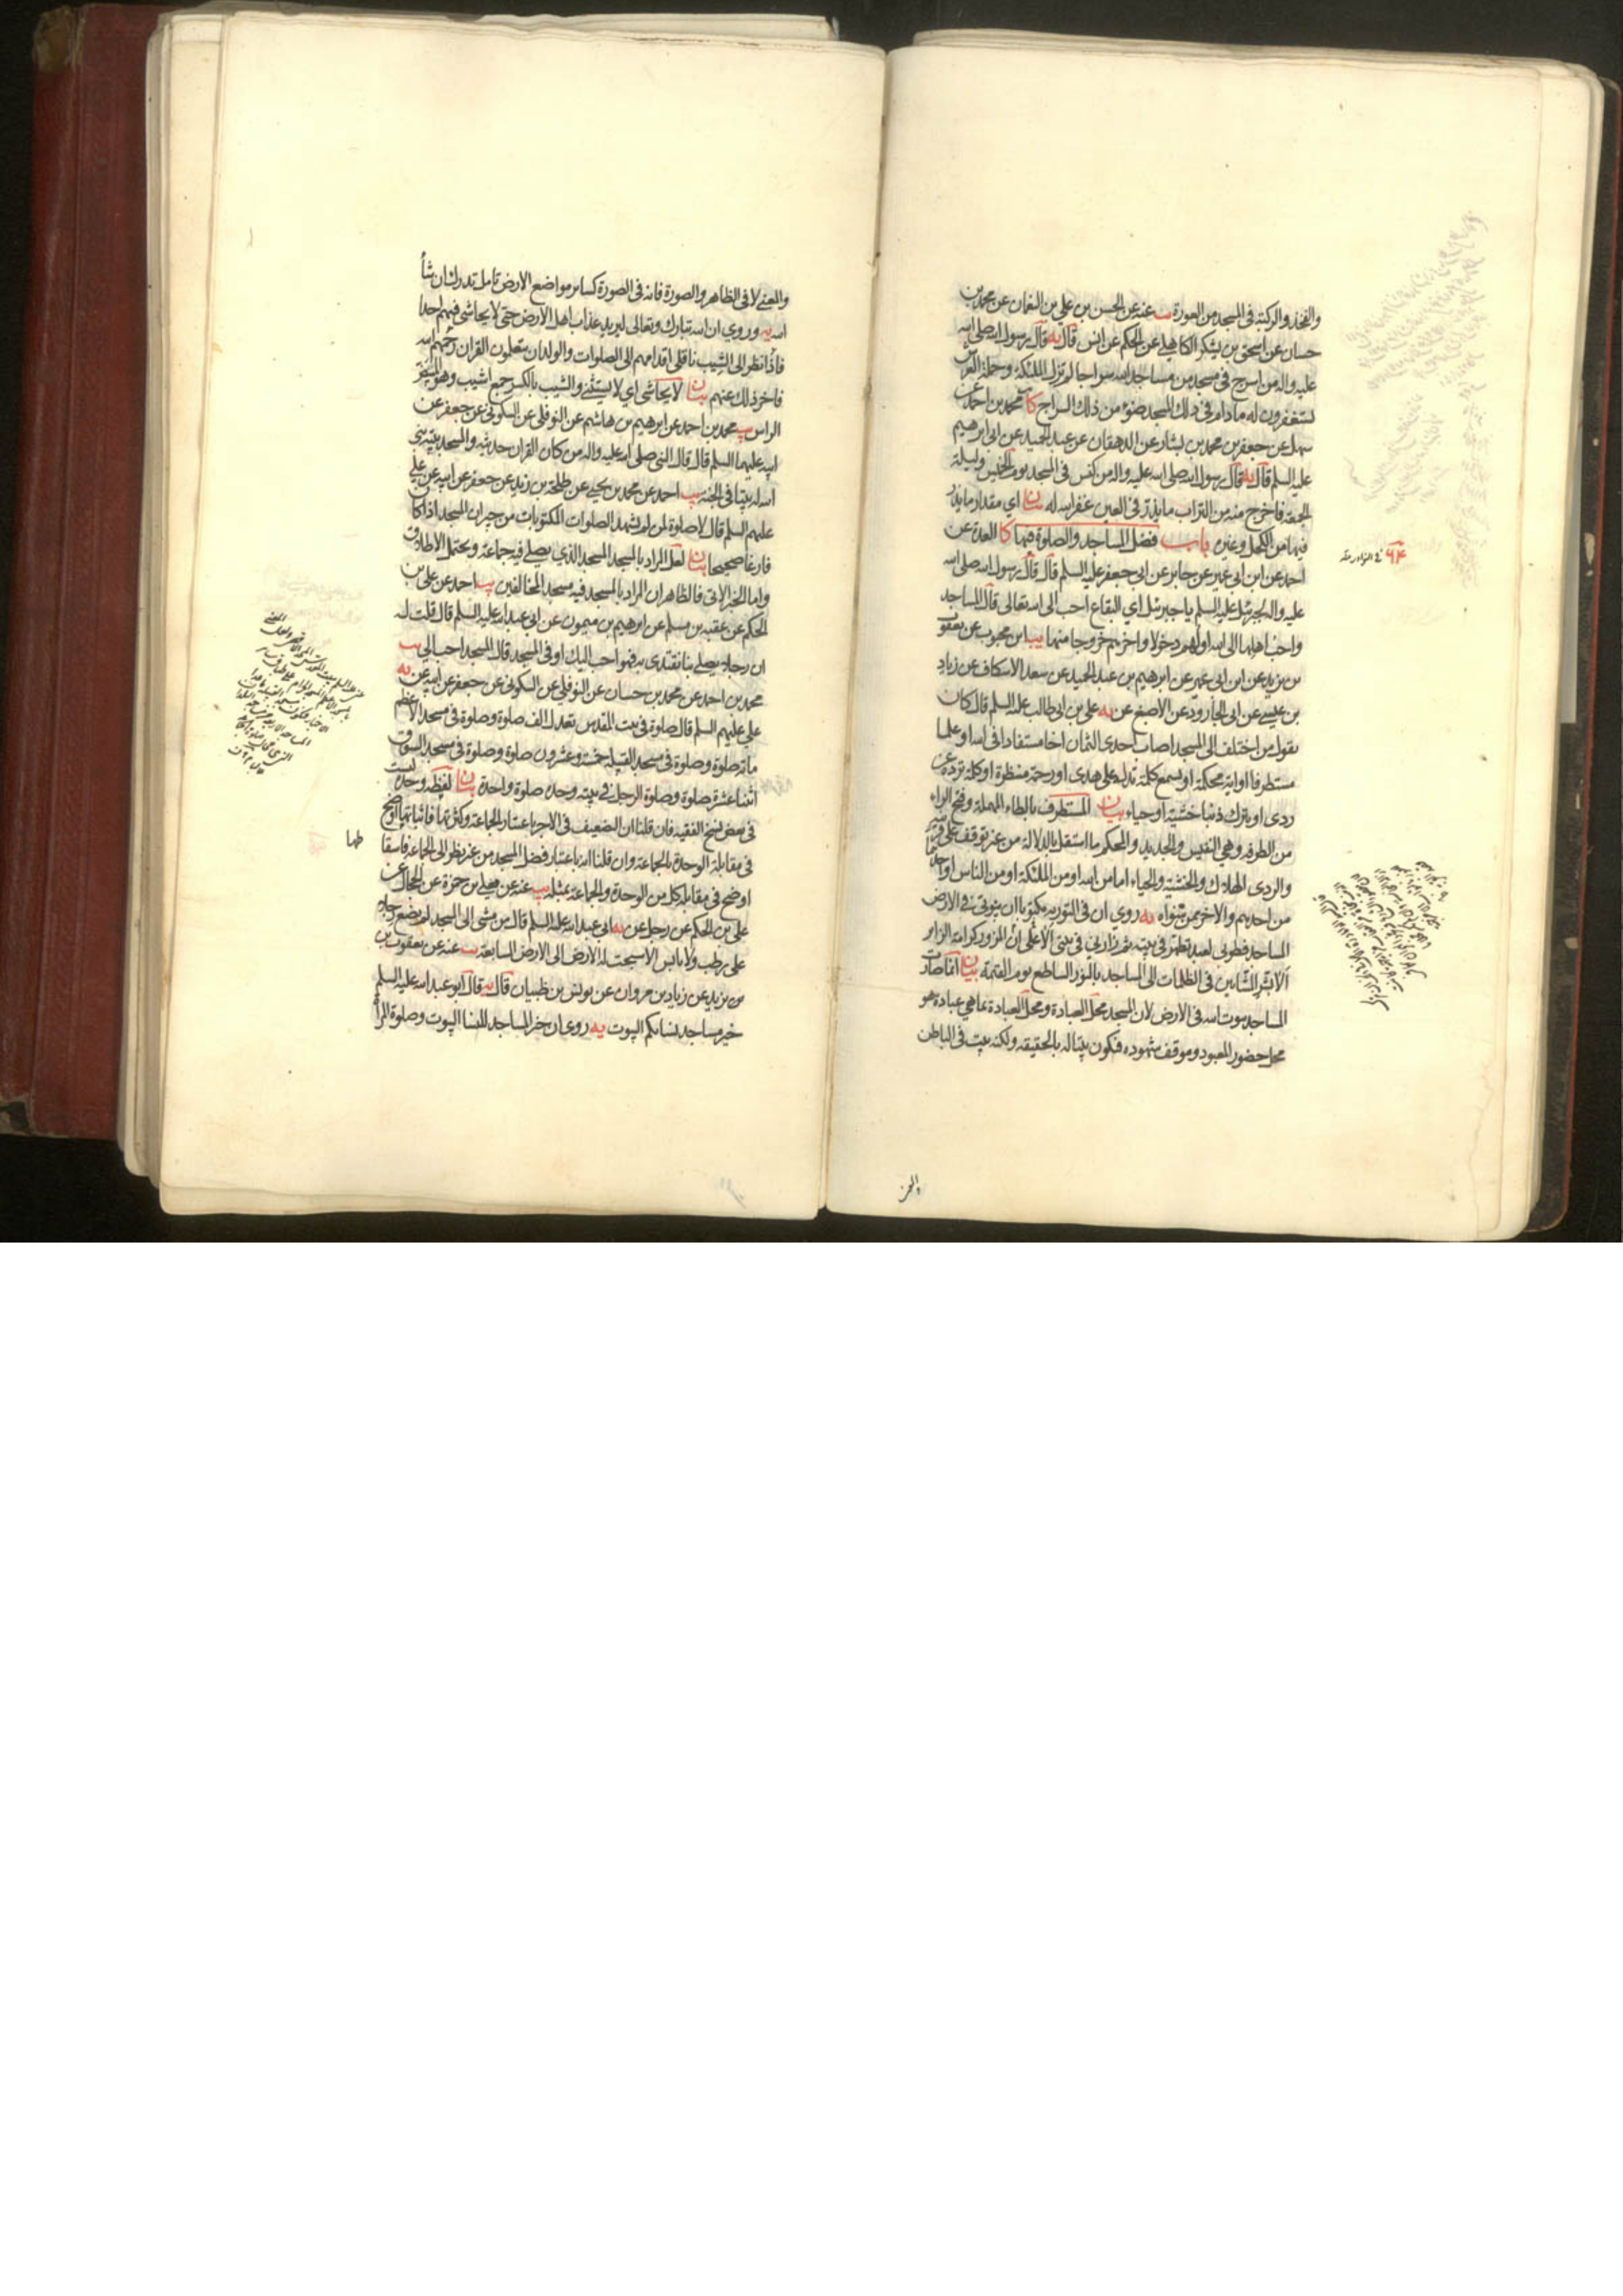 والفخذ والركبة فى المسجد من العورة يب عنه عن الحسن بن علي بن النعمان عن محمد بن
حسان عن اسحق بن يشكر الكاهلي عن الحكم عن انس قال يه قال رسول الله صلى الله
عليه واله من اسرج فى مسجد من مساجد الله سراجا لم تزل الملئكة وحملة العرش
يستغفرون له مادام فى ذلك المسجد ضوء من ذلك السراج كا محمد بن احمد عن
سهل عن جعفر بن محمد بن بشار عن الدهقان عن عبد الحميد عن ابى ابرهيم
عليه السلم قال يه قال رسول الله صلى الله عليه واله من كنس فى المسجد يوم الخميس وليلة
الجمعة فاخرج منه من التراب ما يذر فى العين غفر الله له بيان اي مقدار ما يذر
فيها من الكحل وغيره باب فضل المساجد والصلوة فيها كا العدة عن
احمد عن ابن ابى عمير عن جابر عن ابى جعفر عليه السلم قال قال رسول الله صلى الله
عليه واله لجبرئيل عليه السلم يا جبرئيل اي البقاع احب الى الله تعالى قال المساجد
واحب اهلها الى الله اولهم دخولا واخرهم خروجا منها يب ابن محبوب عن يعقوب
بن يزيد عن ابن ابى عمير عن ابرهيم بن عبد الحميد عن سعد الاسكاف عن زياد
بن عيسى عن ابى الجارود عن الاصبغ عن يه علي بن ابى طالب عليه السلم قال كان
يقول من اختلف الى المسجد اصاب احدى الثمان اخا مستفادا فى الله او علما
مستطرفا او اية محكمة او يسمع كلمة تدله على هدى او رحمة منتظرة او كلمة ترده عن
ردى او يترك ذنبا خشية او حياء بيان المستطرف بالطاء المهملة وفتح الراء
من الطرفه وهى النفيس والجديد والمحكم ما استقل بالدلالة من غير توقف على قرينة
والردى الهلاك والخشية والحياء اما من الله او من الملئكة او من الناس او احدهما
من احدهم والاخر ممن سواه يه روي ان فى التورية مكتوبا ان بيوتى فى الارض
المساجد فطوبى لعبد تطهر فى بيته ثم زارني فى بيتى الا على ان المزور كرامة الزاير
الا بشر المشائين فى الظلمات الى المساجد بالنور الساطع يوم القيمة بيان انما صارت
المساجد بيوت الله فى الارض لان المسجد محل العبادة ومحل العبادة بما هي عبادة هو
محل حضور المعبود وموقف شهوده فيكون بيتا له بالحقيقة ولكنه بيت فى الباطن
٩۴ فى النوادر منه
والمعنى لا فى الظاهر والصورة فانه فى الصورة كساير مواضع الارض تامل تدرك ان شاء
الله يه وروي ان الله تبارك وتعالى ليريد عذاب اهل الارض حتى لا يحاشى فيهم احدا
فاذا نظر الى الشيب ناقلى اقدامهم الى الصلوات والولدان يتعلمون القران رحمهم الله
فاخر ذلك عنهم بيان لا يحاشى اي لا يستثنى والشيب بالكسر جمع اشيب وهو المبيض
الراس يب محمد بن احمد عن ابرهيم بن هاشم عن النوفلي عن السكونى عن جعفر عن
ابيه عليهما السلم قال قال النبى صلى الله عليه واله من كان القران حديثه والمسجد بيته بنى
الله له بيتا فى الجنة يب احمد عن محمد بن يحيى عن طلحة بن زيد عن جعفر عن ابيه عن علي
عليهم السلم قال لا صلوة لمن لم يشهد الصلوات المكتوبات من جيران المسجد اذا كان
فارغا صحيحا بيان لعل المراد بالمسجد المسجد الذي يصلى فيه جماعة ويحتمل الاطلاق
واما الخبر الاتى فالظاهر ان المراد بالمسجد فيه مسجد المخالفين يب احمد عن علي بن
الحكم عن عقبة بن مسلم عن ابرهيم بن ميمون عن ابى عبد الله عليه السلم قال قلت له
ان رجلا يصلى بنا نقتدى به فهو احب اليك او فى المسجد قال المسجد احب الي يب
محمد بن احمد عن محمد بن حسان عن النوفلي عن السكونى عن جعفر عن ابيه عن يه
علي عليهم السلم قال صلوة فى بيت المقدس تعدل الف صلوة وصلوة فى مسجد الاعظم
ماة صلوة وصلوة فى مسجد القبيلة خمسة وعشرون صلوة وصلوة فى مسجد السوق
اثنتا عشرة صلوة وصلوة الرجل فى بيته وحده صلوة واحدة بيان لفظة وحده ليست
فى بعض نسخ الفقيه فان قلنا ان التضعيف فى الاجر باعتبار الجماعة وكثرتها فاثباتها اوضح
فى مقابلة الوحدة بالجماعة وان قلنا انه باعتبار فضل المسجد من غير نظر الى الجماعة فاسقاطها
اوضح فى مقابلة كل من الوحدة والجماعة بمثله يب عنه عن يعلى بن حمزة عن الحجال عن
علي بن الحكم عن رجل عن يه ابى عبد الله عليه السلم قال من مشى الى المسجد لم يضع رجله
على رطب ولا يابس الا سبحت له الارض الى الارض السابعة يب عنه عن يعقوب بن
بن يزيد عن زياد بن مروان عن يونس بن ظبيان قال يه قال ابو عبد الله عليه السلم
خير مساجد نسائكم البيوت يه روى ان خير المساجد للنساء البيوت وصلوة المراة